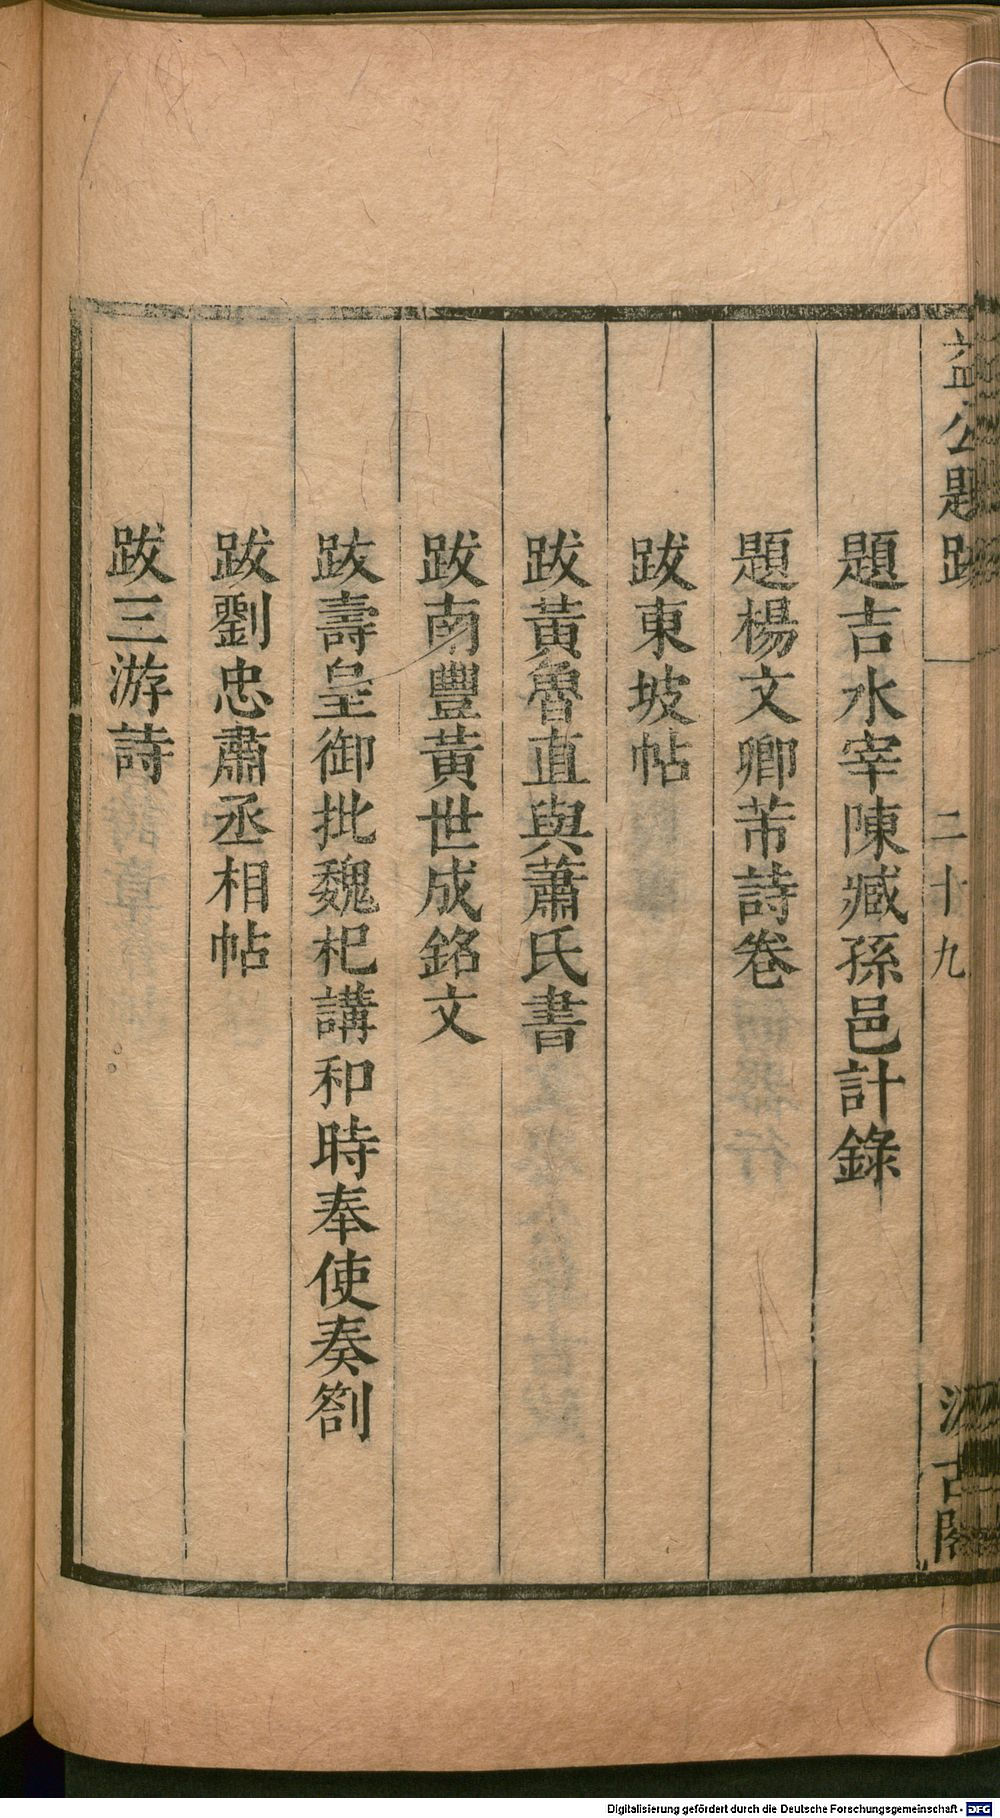 益公題跋
二十九
汲古閣
題吉水宰陳臧孫邑計錄
題楊文卿芾詩卷
跋東坡帖
跋黃魯直與蕭氏書
跋南豐黃世成銘文
跋壽皇御批魏杞講和時奉使奏劄
跋劉忠肅丞相帖
跋三游詩
Digitalisierung gefördert durch die Deutsche Forschungsgemeinschaft - DFG